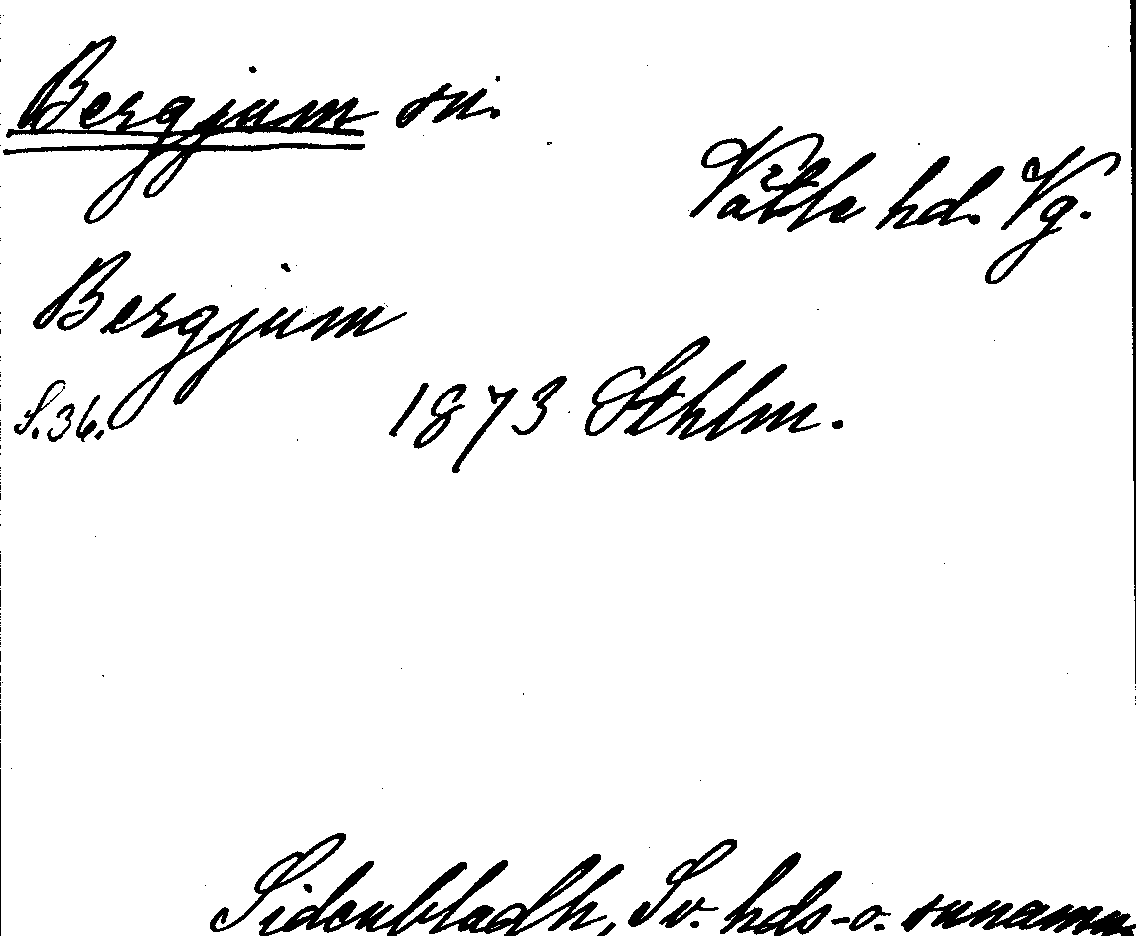 Bergjum sn.
Vättle hd. Vg.
Bergjum
S. 36. 1873 Sthlm.
Sidenbladh, Sv. hds- o. snnamn.